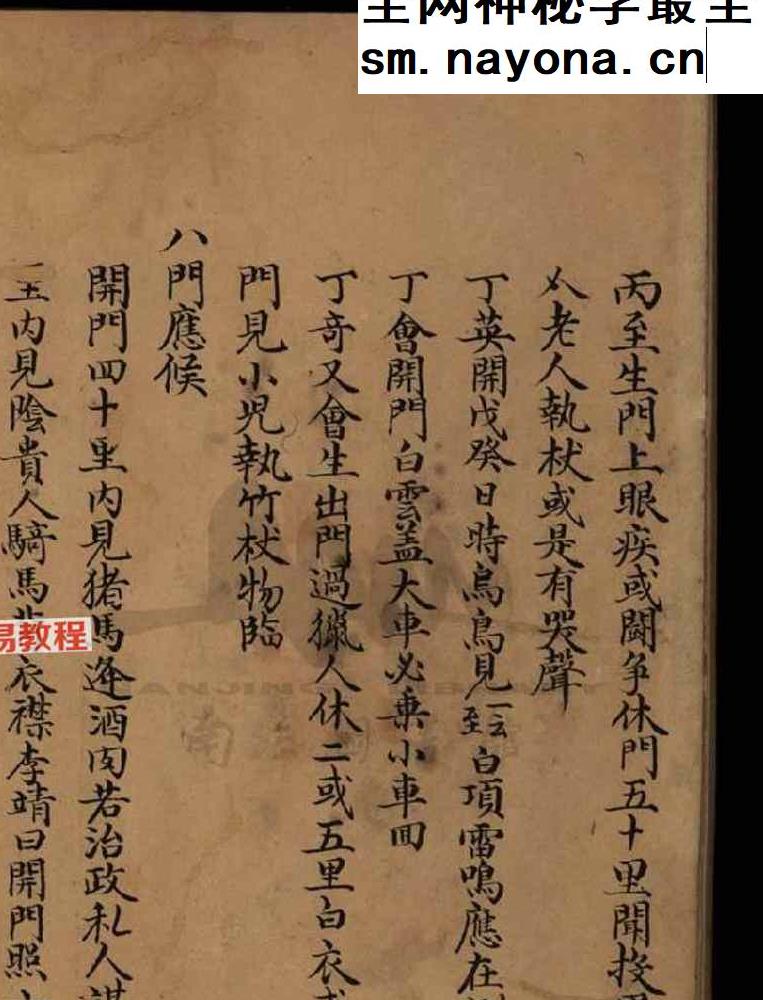 全网神秘学最全
sm.nayona.cn
丙至生門上眼疾或闘争休門五十里聞投
老人執杖或是有哭聲
丁英開戊癸日時烏鳥見一云至白項雷鳴應在
丁會開門白雲蓋大車必乗小車回
丁奇又會生出門過獵人休二或五里白衣或
門見小児執竹杖物臨
八門應候
開門四十里内見猪馬逢酒肉若治政私人謀
里内見陰貴人騎馬 衣襟李靖曰開門照
易教程